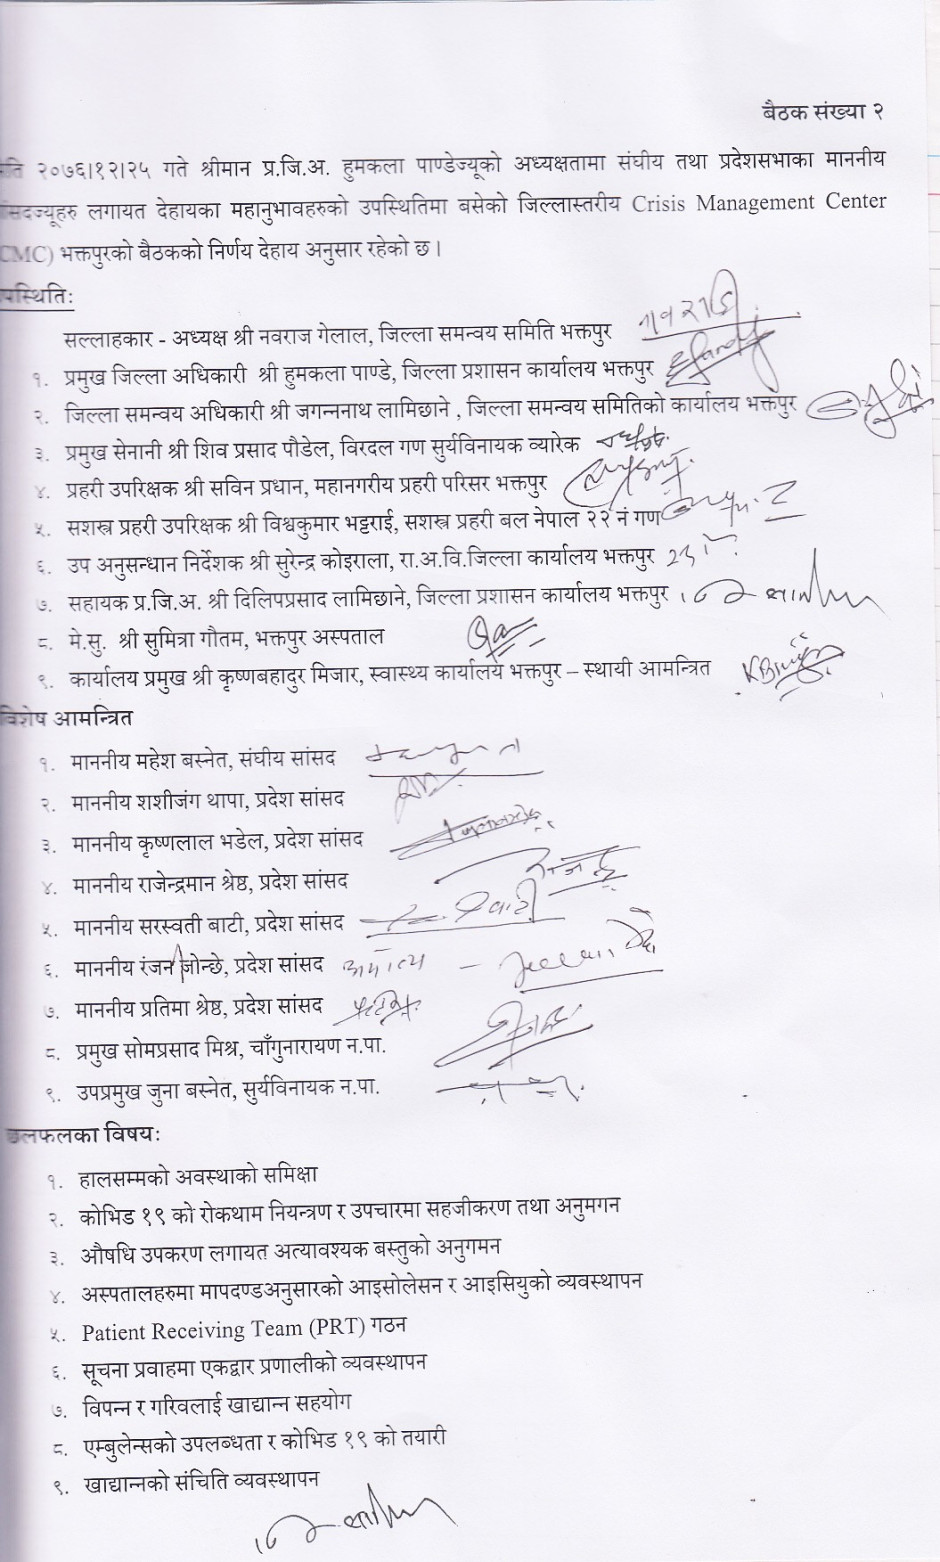 बैठक संख्या २
२०७६।१२।२५ गते श्रीमान प्र.जि.अ. हुमकला पाण्डेज्यूको अध्यक्षतामा संघीय तथा प्रदेशसभाका माननीय
लगायत देहायका महानुभावहरुको उपस्थितिमा बसेको जिल्लास्तरीय Crisis Management Center
CMC) भक्तपुरको बैठकको निर्णय देहाय अनुसार रहेको छ।
पस्थितिः
सल्लाहकार - अध्यक्ष श्री नवराज गेलाल, जिल्ला समन्वय समिति भक्तपुर
१. प्रमुख जिल्ला अधिकारी श्री हुमकला पाण्डे, जिल्ला प्रशासन कार्यालय भक्तपुर
२. जिल्ला समन्वय अधिकारी श्री जगन्ननाथ लामिछाने , जिल्ला समन्वय समितिको कार्यालय भक्तपुर
३. प्रमुख सेनानी श्री शिव प्रसाद पौडेल, विरदल गण सुर्यविनायक व्यारेक
४. प्रहरी उपरिक्षक श्री सविन प्रधान, महानगरीय प्रहरी परिसर भक्तपुर
५. सशस्त्र प्रहरी उपरिक्षक श्री विश्वकुमार भट्टराई, सशस्त्र प्रहरी बल नेपाल २२ नं गण
६. उप अनुसन्धान निर्देशक श्री सुरेन्द्र कोइराला, रा.अ.वि.जिल्ला कार्यालय भक्तपुर
७. सहायक प्र.जि.अ. श्री दिलिपप्रसाद लामिछाने, जिल्ला प्रशासन कार्यालय भक्तपुर
८. मे.सु. श्री सुमित्रा गौतम, भक्तपुर अस्पताल
९. कार्यालय प्रमुख श्री कृष्णबहादुर मिजार, स्वास्थ्य कार्यालय भक्तपुर – स्थायी आमन्त्रित
विशेष आमन्त्रित
१. माननीय महेश बस्नेत, संघीय सांसद
२. माननीय शशीजंग थापा, प्रदेश सांसद
३. माननीय कृष्णलाल भडेल, प्रदेश सांसद
४. माननीय राजेन्द्रमान श्रेष्ठ, प्रदेश सांसद
५. माननीय सरस्वती बाटी, प्रदेश सांसद
६. माननीय रंजना जोन्छे, प्रदेश सांसद
७. माननीय प्रतिमा श्रेष्ठ, प्रदेश सांसद
८. प्रमुख सोमप्रसाद मिश्र, चाँगुनारायण न.पा.
९. उपप्रमुख जुना बस्नेत, सुर्यविनायक न.पा.
छलफलका विषयः
१. हालसम्मको अवस्थाको समिक्षा
२. कोभिड १९ को रोकथाम नियन्त्रण र उपचारमा सहजीकरण तथा अनुमगन
३. औषधि उपकरण लगायत अत्यावश्यक बस्तुको अनुगमन
४. अस्पतालहरुमा मापदण्डअनुसारको आइसोलेसन र आइसियुको व्यवस्थापन
५. Patient Receiving Team (PRT) गठन
६. सूचना प्रवाहमा एकद्वार प्रणालीको व्यवस्थापन
७. विपन्न र गरिवलाई खाद्यान्न सहयोग
८. एम्बुलेन्सको उपलब्धता र कोभिड १९ को तयारी
९. खाद्यान्नको संचिति व्यवस्थापन